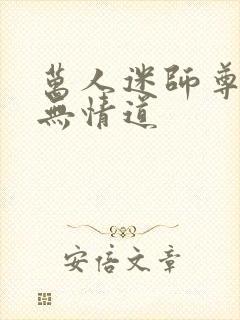 萬人迷師尊
無情道
安倍文章